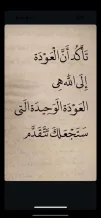 تَأَكَّد أَنَّ العَوْدَة
إِلَى اللهِ هِي
العَوْدَة الْوَحِيدَة الَتِي
سَتَجْعَلكَ تَتَقَدَّم